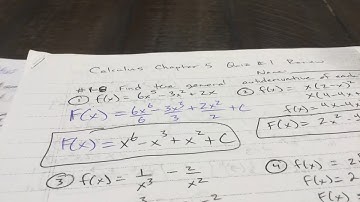 Calculus Chapter 5 Quiz #1 Review
Name
#1-8 Find the general antiderivative of each
① f(x) = 6x⁵ - 3x² + 2x
F(x) = 6x⁶/6 - 3x³/3 + 2x²/2 + C
F(x) = x⁶ - x³ + x² + C
② f(x) = x(2-x)²
f(x) = 4x - 4x
F(x) = 2x² -
③ f(x) = 1/x³ - 2/x²
④ f(x) = 2
f(x) = 2